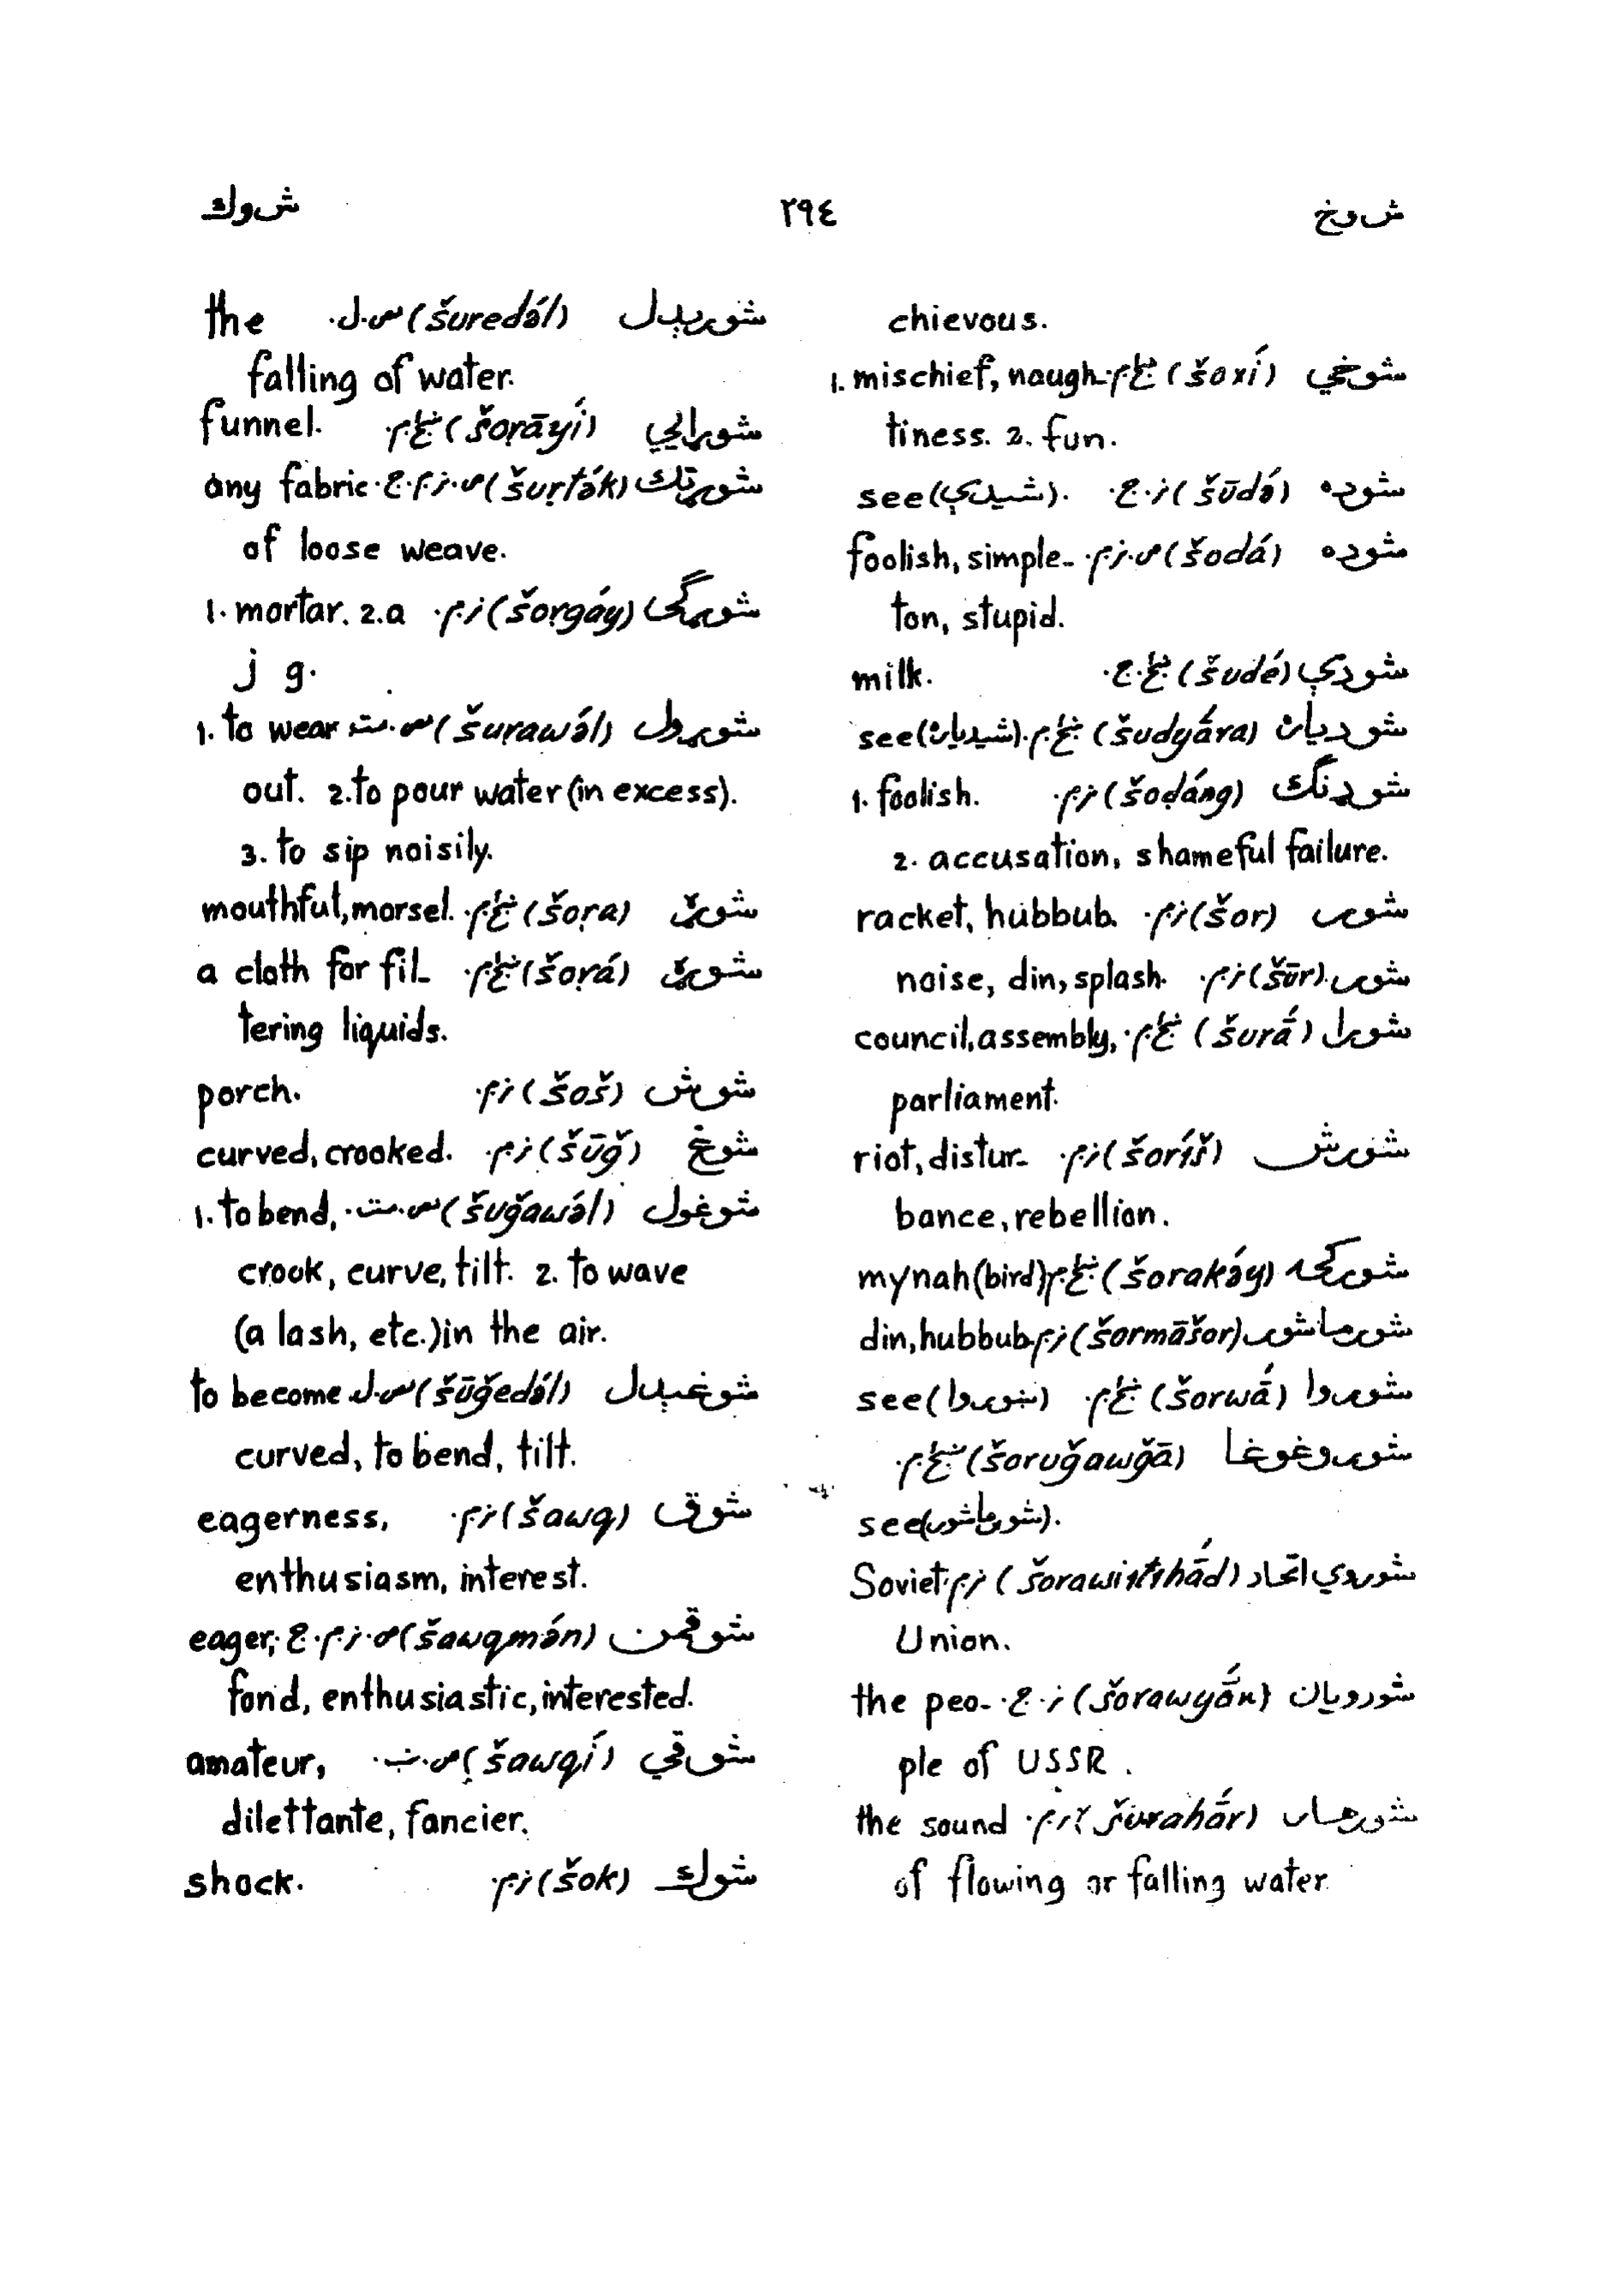 ش و خ ٢٩٤ ش و ك
chievous.
شوخي (šoxí) ښځ.م. 1. mischief, naugh-
tiness. 2. fun.
شوده (šūdə́) نر.ج. see (شيدې).
شوده (šodá) ص.نر.م. foolish, simple-
ton, stupid.
شودې (šudé) ښځ.ج. milk.
شودياره (šudyā́ra) ښځ.م. see (شيدياره).
شوډنګ (šoḍáng) نر.م. 1. foolish.
2. accusation, shameful failure.
شور (šor) نر.م. racket, hubbub.
شور (šūr) نر.م. noise, din, splash.
شورا (šurā́) ښځ.م. council, assembly,
parliament.
شورش (šoríš) نر.م. riot, distur-
bance, rebellion.
شورکۍ (šorakə́y) ښځ.م. mynah (bird)
شورماشور (šormāšor) نر.م. din, hubbub
شوروا (šorwā́) ښځ.م. see (ښوروا)
شوروغوغا (šoruğawğā) ښځ.م.
see (شورماشور).
شوروي اتحاد (šorawiittihā́d) نر.م. Soviet
Union.
شورويان (šorawyā́n) نر.ج. the peo-
ple of USSR.
شورهار (šurahā́r) نر.م. the sound
of flowing or falling water
شوريدل (šuredə́l) مص.ل. the
falling of water.
شوړايي (šoṛāyí) ښځ.م. funnel.
شوړتک (šuṛtə́k) ص.نر.م.ج. any fabric
of loose weave.
شوړګی (šoṛgáy) نر.م. 1. mortar. 2. a
j g.
شوړول (šuṛawə́l) مص.مت. 1. to wear
out. 2. to pour water (in excess).
3. to sip noisily.
شوړه (šoṛa) ښځ.م. mouthful, morsel.
شوړه (šoṛá) ښځ.م. a cloth for fil-
tering liquids.
شوش (šoš) نر.م. porch.
شوغ (šūğ) نر.م. curved, crooked.
شوغول (šuğawə́l) مص.مت. 1. to bend,
crook, curve, tilt. 2. to wave
(a lash, etc.) in the air.
شوغېدل (šūğedə́l) مص.ل. to become
curved, to bend, tilt.
شوق (šawq) نر.م. eagerness,
enthusiasm, interest.
شوقمن (šawqmə́n) ص.نر.م.ج. eager,
fond, enthusiastic, interested.
شوقي (šawqí) ص. amateur,
dilettante, fancier.
شوك (šok) نر.م. shock.